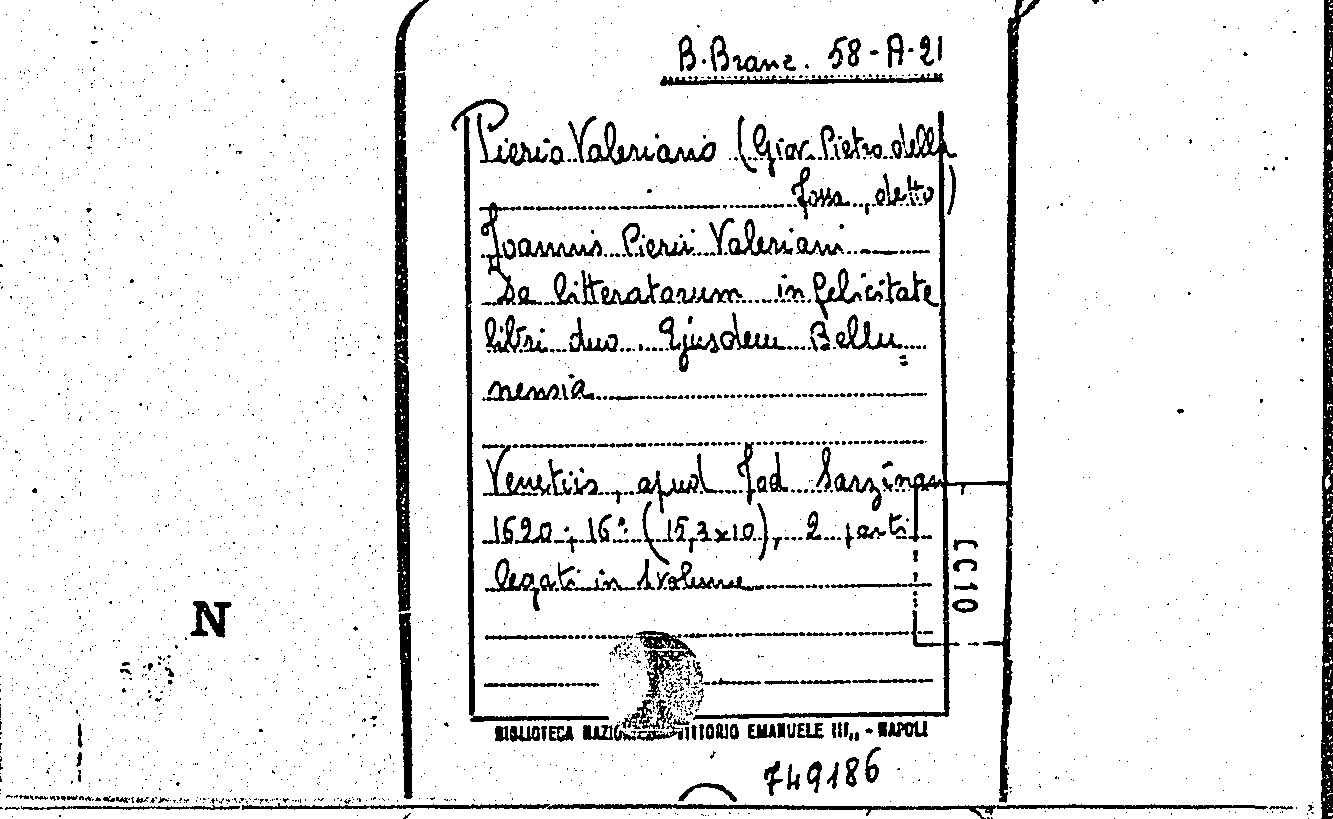 B. Branc. 58-A-21
Pierio Valeriano (Giov. Pietro della
fossa, detto)
Joannis Pierii Valeriani
De litteratorum infelicitate
libri duo. Ejusdem Bellu=
nensia
Venetiis, apud Jad Sarzinam
1620; 16° (15,3x10), 2 parti
legati in 1 volume
LC10
N
BIBLIOTECA VITTORIO EMANUELE III,, - NAPOLI
749186